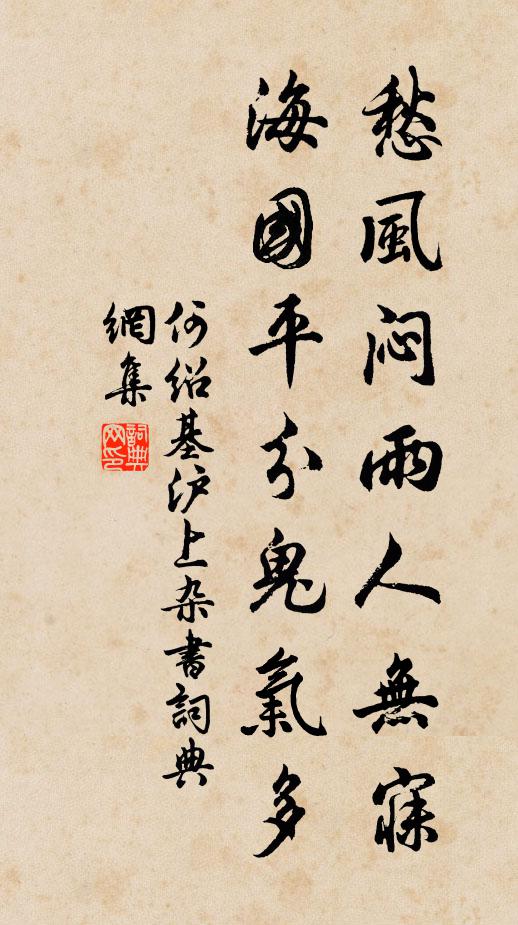 愁風闷雨人無寐
海國平分鬼氣多
何紹基沪上杂書詞典
網集
詞典網印